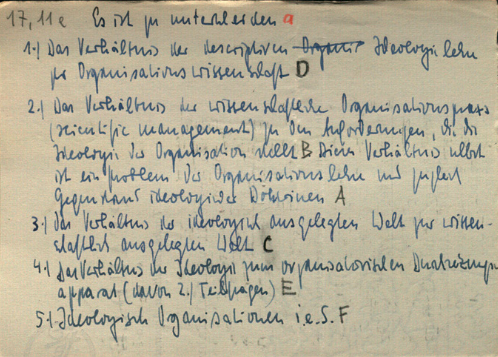 17,11e Es ist zu unterscheiden a
1.) Das Verhältnis der descriptiven Organis Ideologienlehre
zur Organisationswissenschaft D
2.) Das Verhältnis der wissenschaftlichen Organisationspraxis
(scientific management) zu den Anforderungen, die die
Ideologie der Organisation stellt B Dieses Verhältnis selbst
ist ein Problem der Organisationslehre und zugleich
Gegenstand ideologischer Doktrinen A
3.) Das Verhältnis der ideologisch ausgelegten Welt zur wissen-
schaftlich ausgelegten Welt C
4.) Das Verhältnis der Ideologie zum organisatorischen
apparat (davon 2.) Teilfragen) E
5.) Ideologische Organisationen i.e.S. F